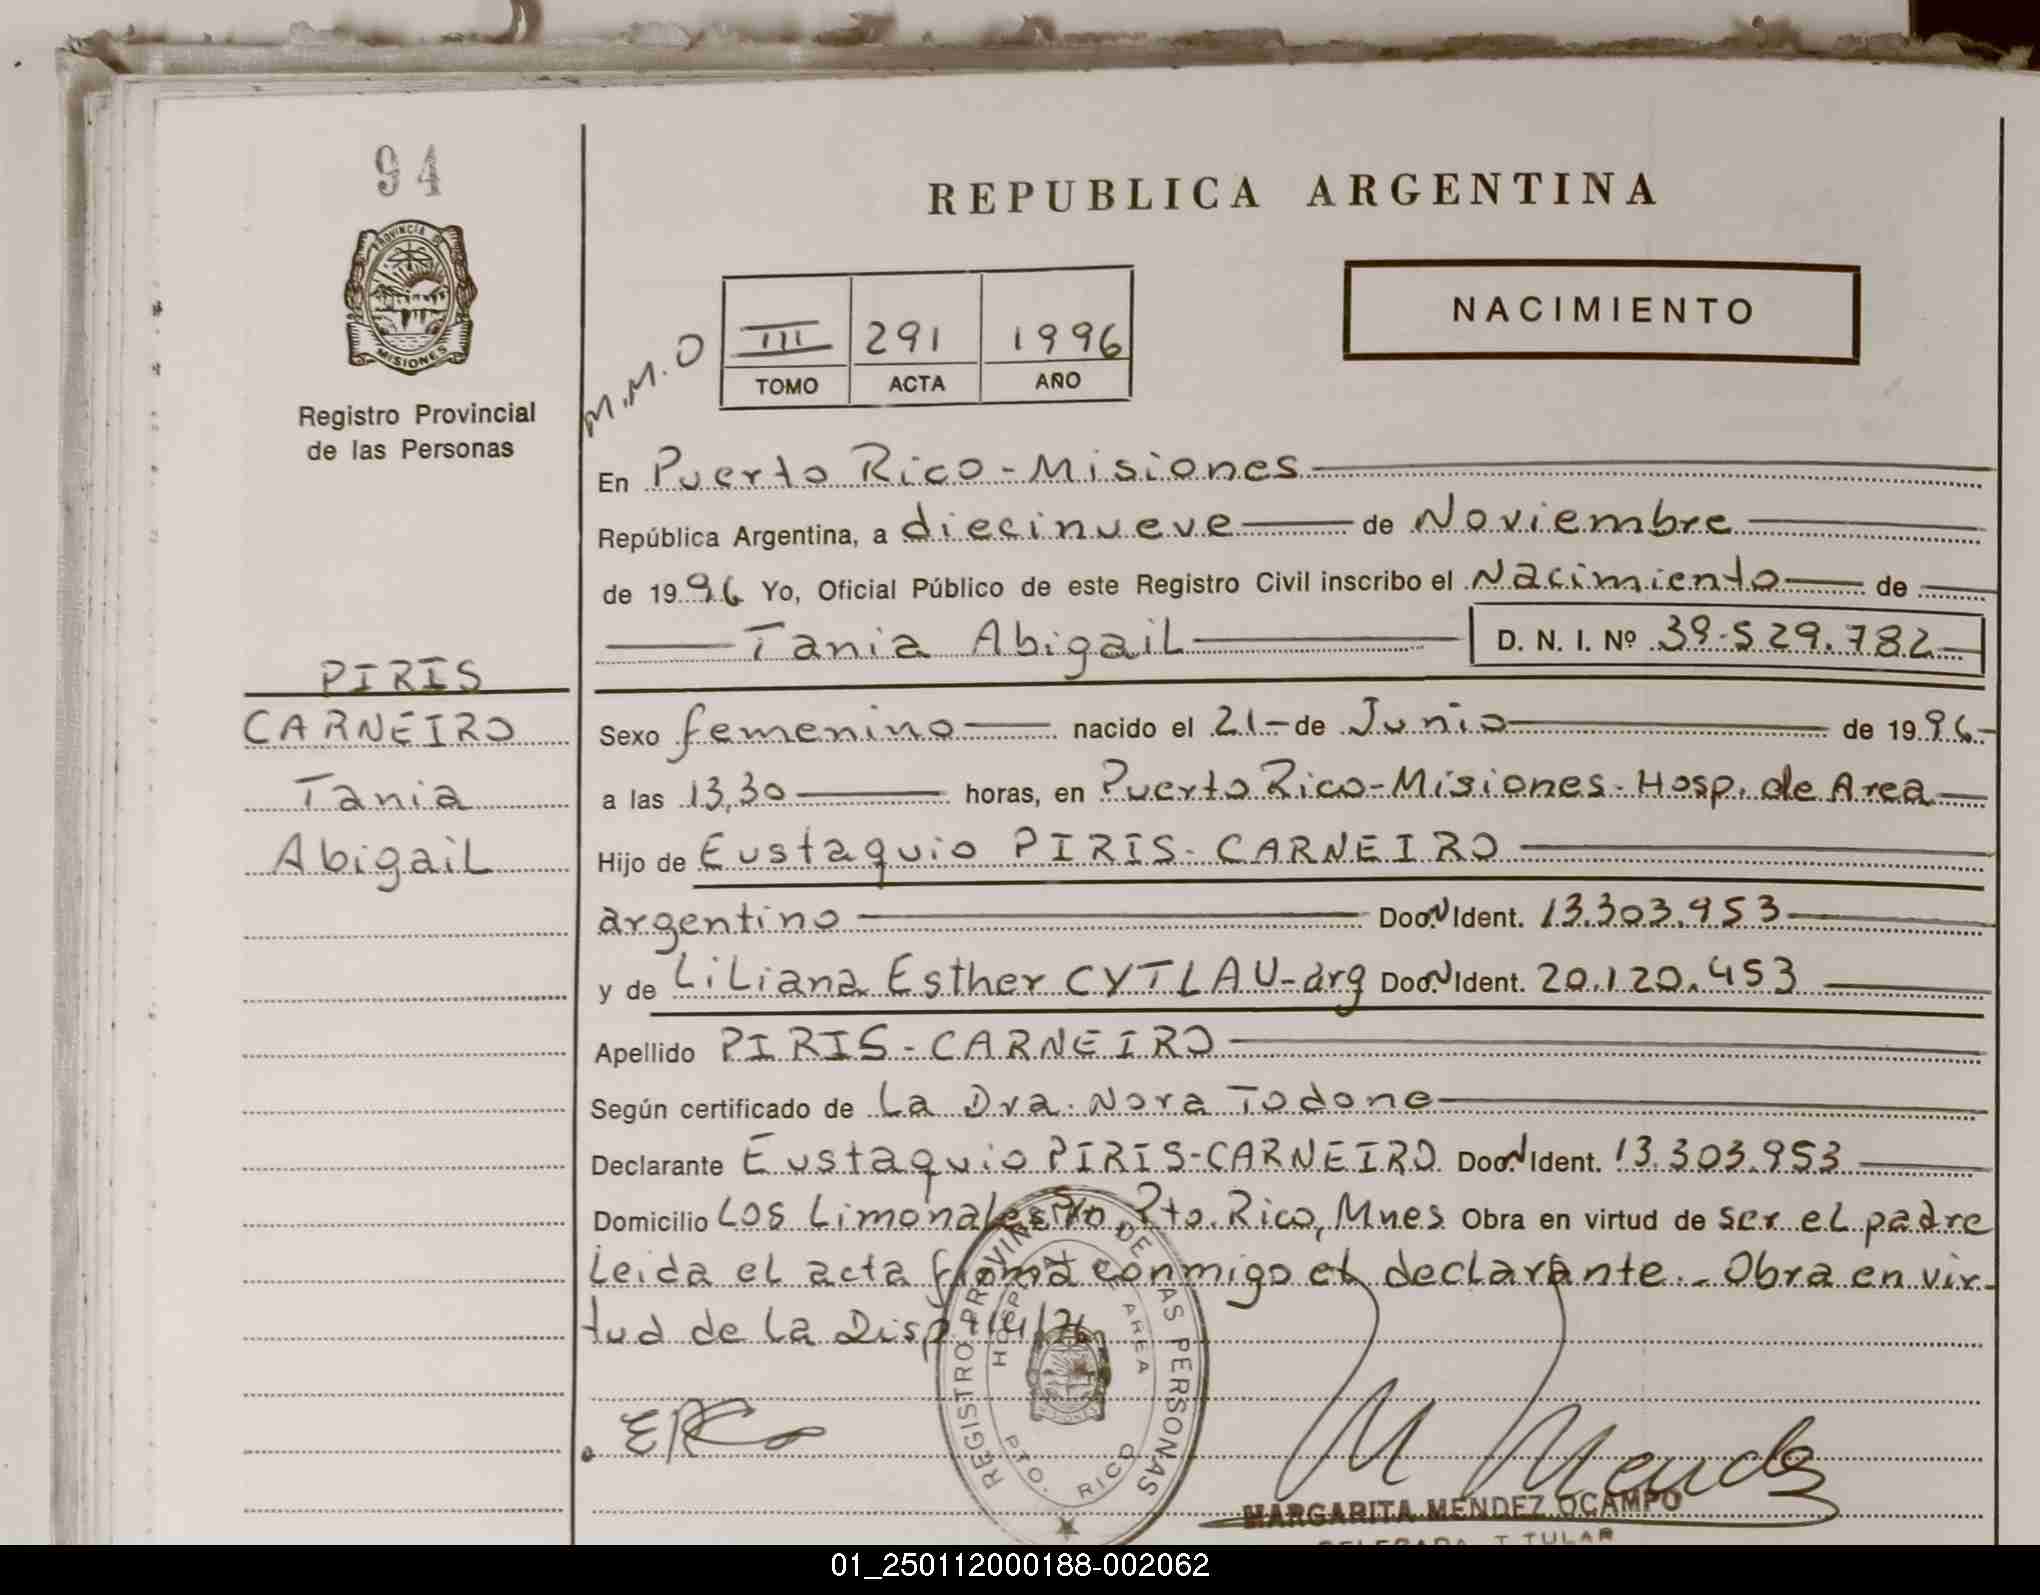 94
PROVINCIA DE
MISIONES
Registro Provincial
de las Personas
REPUBLICA ARGENTINA
NACIMIENTO
M.M.O
III 291 1996
TOMO ACTA AÑO
En Puerto Rico - Misiones
República Argentina, a diecinueve de Noviembre
de 1996 Yo, Oficial Público de este Registro Civil inscribo el Nacimiento de
Tania Abigail D. N. I. Nº 39.529.782
PIRIS
CARNEIRO
Tania
Abigail
Sexo femenino nacido el 21 - de Junio de 1996
a las 13,30 horas, en Puerto Rico - Misiones - Hosp. de Area
Hijo de Eustaquio PIRIS - CARNEIRO
argentino Doc. N Ident. 13.303.953
y de Liliana Esther CYTLAU - arg Doc. N Ident. 20.120.453
Apellido PIRIS - CARNEIRO
Según certificado de La Dra. Nora Todone
Declarante Eustaquio PIRIS - CARNEIRO Doc. N Ident. 13.303.953
Domicilio Los Limonales S/n, Pto. Rico, Mnes Obra en virtud de ser el padre
Leida el acta firma conmigo el declarante. - Obra en vir-
tud de la Disp
REGISTRO PROVINCIAL DE LAS PERSONAS
HOSPITAL DE AREA
PTO. RICO
M Mendez
MARGARITA MENDEZ OCAMPO
DELEGADA TITULAR
01_250112000188-002062